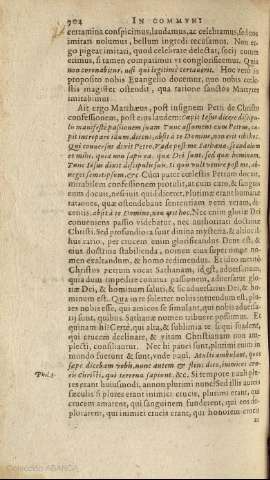 904 IN COMMVNI
certamina conspicimus, laudamus, ac celebramus, sed nos
imitari nolumus, bellum ingredi recusamus. Non er-
go pigeat imitari, quod celebrare delectat, socij enim
erimus, si tamen compatimur vt conglorificemur. Quia
non coronabitur, nisi qui legitimè certauerit. Hoc verò in
proposito nobis Euangelio docemur, quo nobis cæle-
stis magister ostendit, qua ratione sanctos Martyres
imitabimur.
Ait ergo Matthæus, post insignem Petri de Christo
confessionem, post eius laudem: Cœpit Iesus dicere discipu-
lis manifestè passionem suam. Tunc assumens eum Petrus, cœ-
pit increpare illum, dicens: absit à te Domine, non erit tibi hoc.
Qui conuersus dixit Petro, Vade post me Sathana, scandalum
es mihi, quia non sapis ea, quæ Dei sunt, sed quæ hominum.
Tunc Iesus dixit discipulis suis. Si quis vult venire post me, ab-
neget semetipsum, &c. Cùm pater cælestis Petrum docuit,
mirabilem confessionem protulit, at cum caro, & sanguis
eum docuit, nesciuit quid diceret, plurimæ erant humanæ
rationes, quæ ostendebant sententiam Petri veram, di-
centis absit à te Domine, non erit hoc. Nec enim gloriæ Dei
conueniens passio videbatur, nec authoritati doctrinæ
Christi. Sed profundiora sunt diuina mysteria, & altior il-
lius ratio, per crucem enim glorificandus Deus est, &
eius doctrina stabilienda, nomen eius super omne no-
men exaltandum, & homo redimendus. Et ideo meritò
Christus Petrum vocat Sathanam, id est, aduersarium,
quia dum impedire conatur passionem, aduersatur glo-
riæ Dei, & hominum saluti, & sic aduersatus Dei, & ho-
minum est. Quare in te soleiter nobis intuendum est, plu-
res nobis esse, qui amicos se simulant, qui nobis aduersa-
rij sunt, quibus Sathanæ nomen tribuere possimus. Et
quinam hi? Certè, qui alta, & sublimia te sequi suadent,
qui crucem declinare, & vitam Christianam non am-
plecti, consiliantur. Nec hi pauci sunt, plurimi enim in
mundo fuerunt & sunt, vnde Pauli. Multi ambulant, quos
sæpe dicebam vobis, nunc autem & flens dico, inimicos cru-
Phil. 3. cis Christi, qui terrena sapiunt, &c. Si tempore Pauli plu-
res erant huiusmodi, annon plurimi nunc? Sed illis aureis
sæculis si plures erant inimici crucis, plurimi erant, qui
crucem amarent, qui sanguinem funderent, qui eos de-
plorarent, qui inimici crucis erant, qui honorem crucis
Colección ABANCA